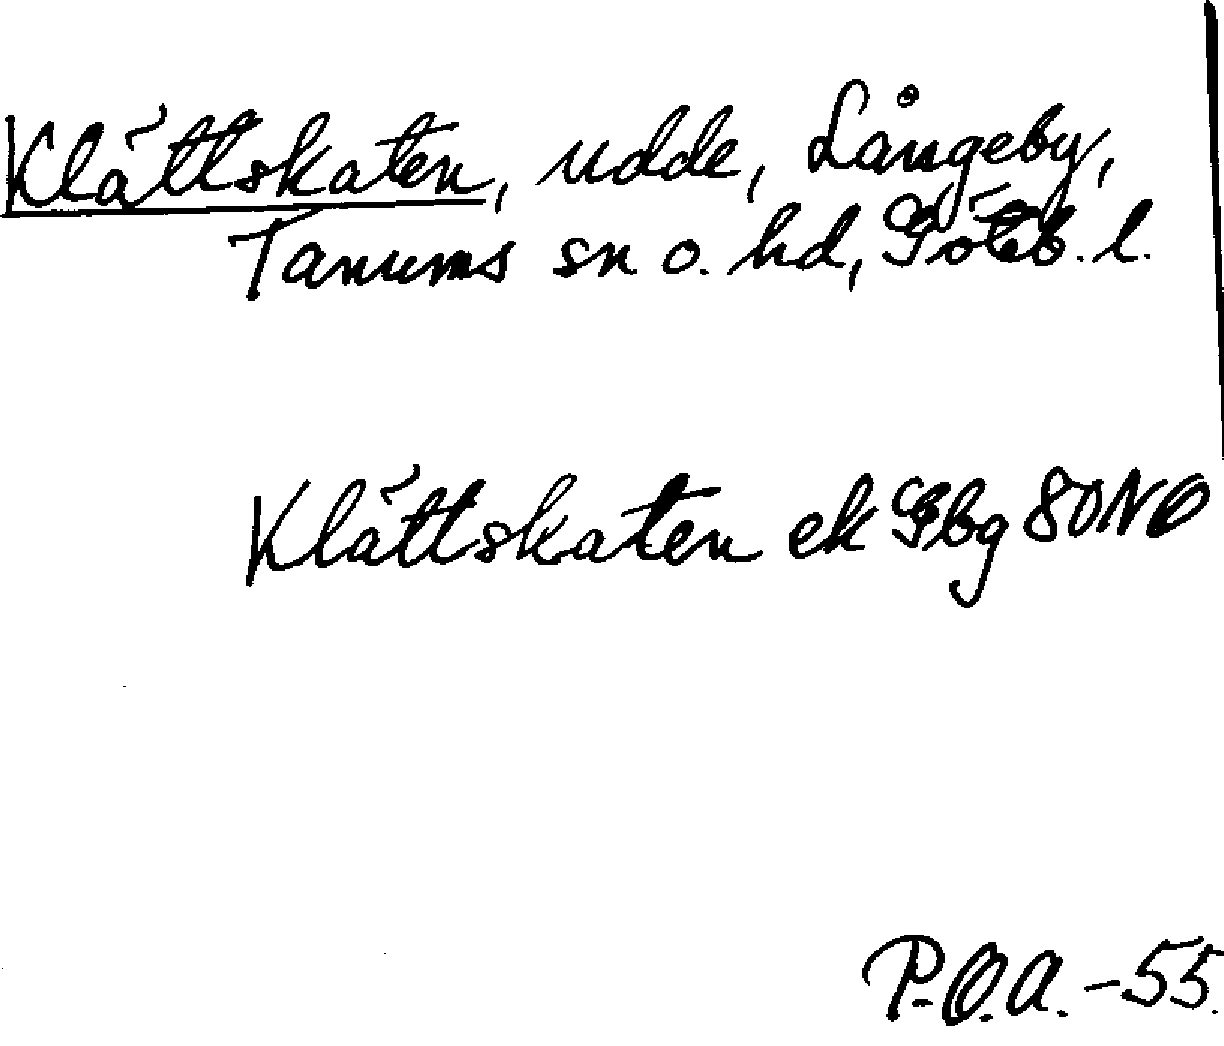 Klättskaten, udde, Långeby,
Tanums sn o. hd, Göteb. l.
Klättskaten ek Gbg 80NO
P.O.A. -55.